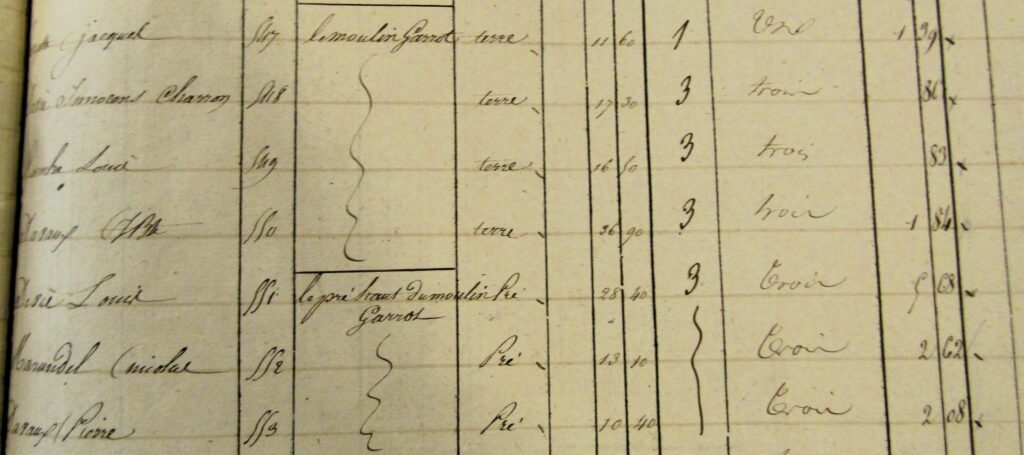 Jacque 547 le moulin Garrot terre 11 60 1 Une 1 39
Innocens Charron 548 terre 17 30 3 trois 86
Louis 549 terre 16 50 3 trois 83
550 terre 36 90 3 trois 1 84
Louis 551 le pré haut du moulin Pré 28 40 3 Trois 5 68
Garrot
Nicolas 552 Pré 13 10 Trois 2 62
Pierre 553 Pré 10 40 Trois 2 08